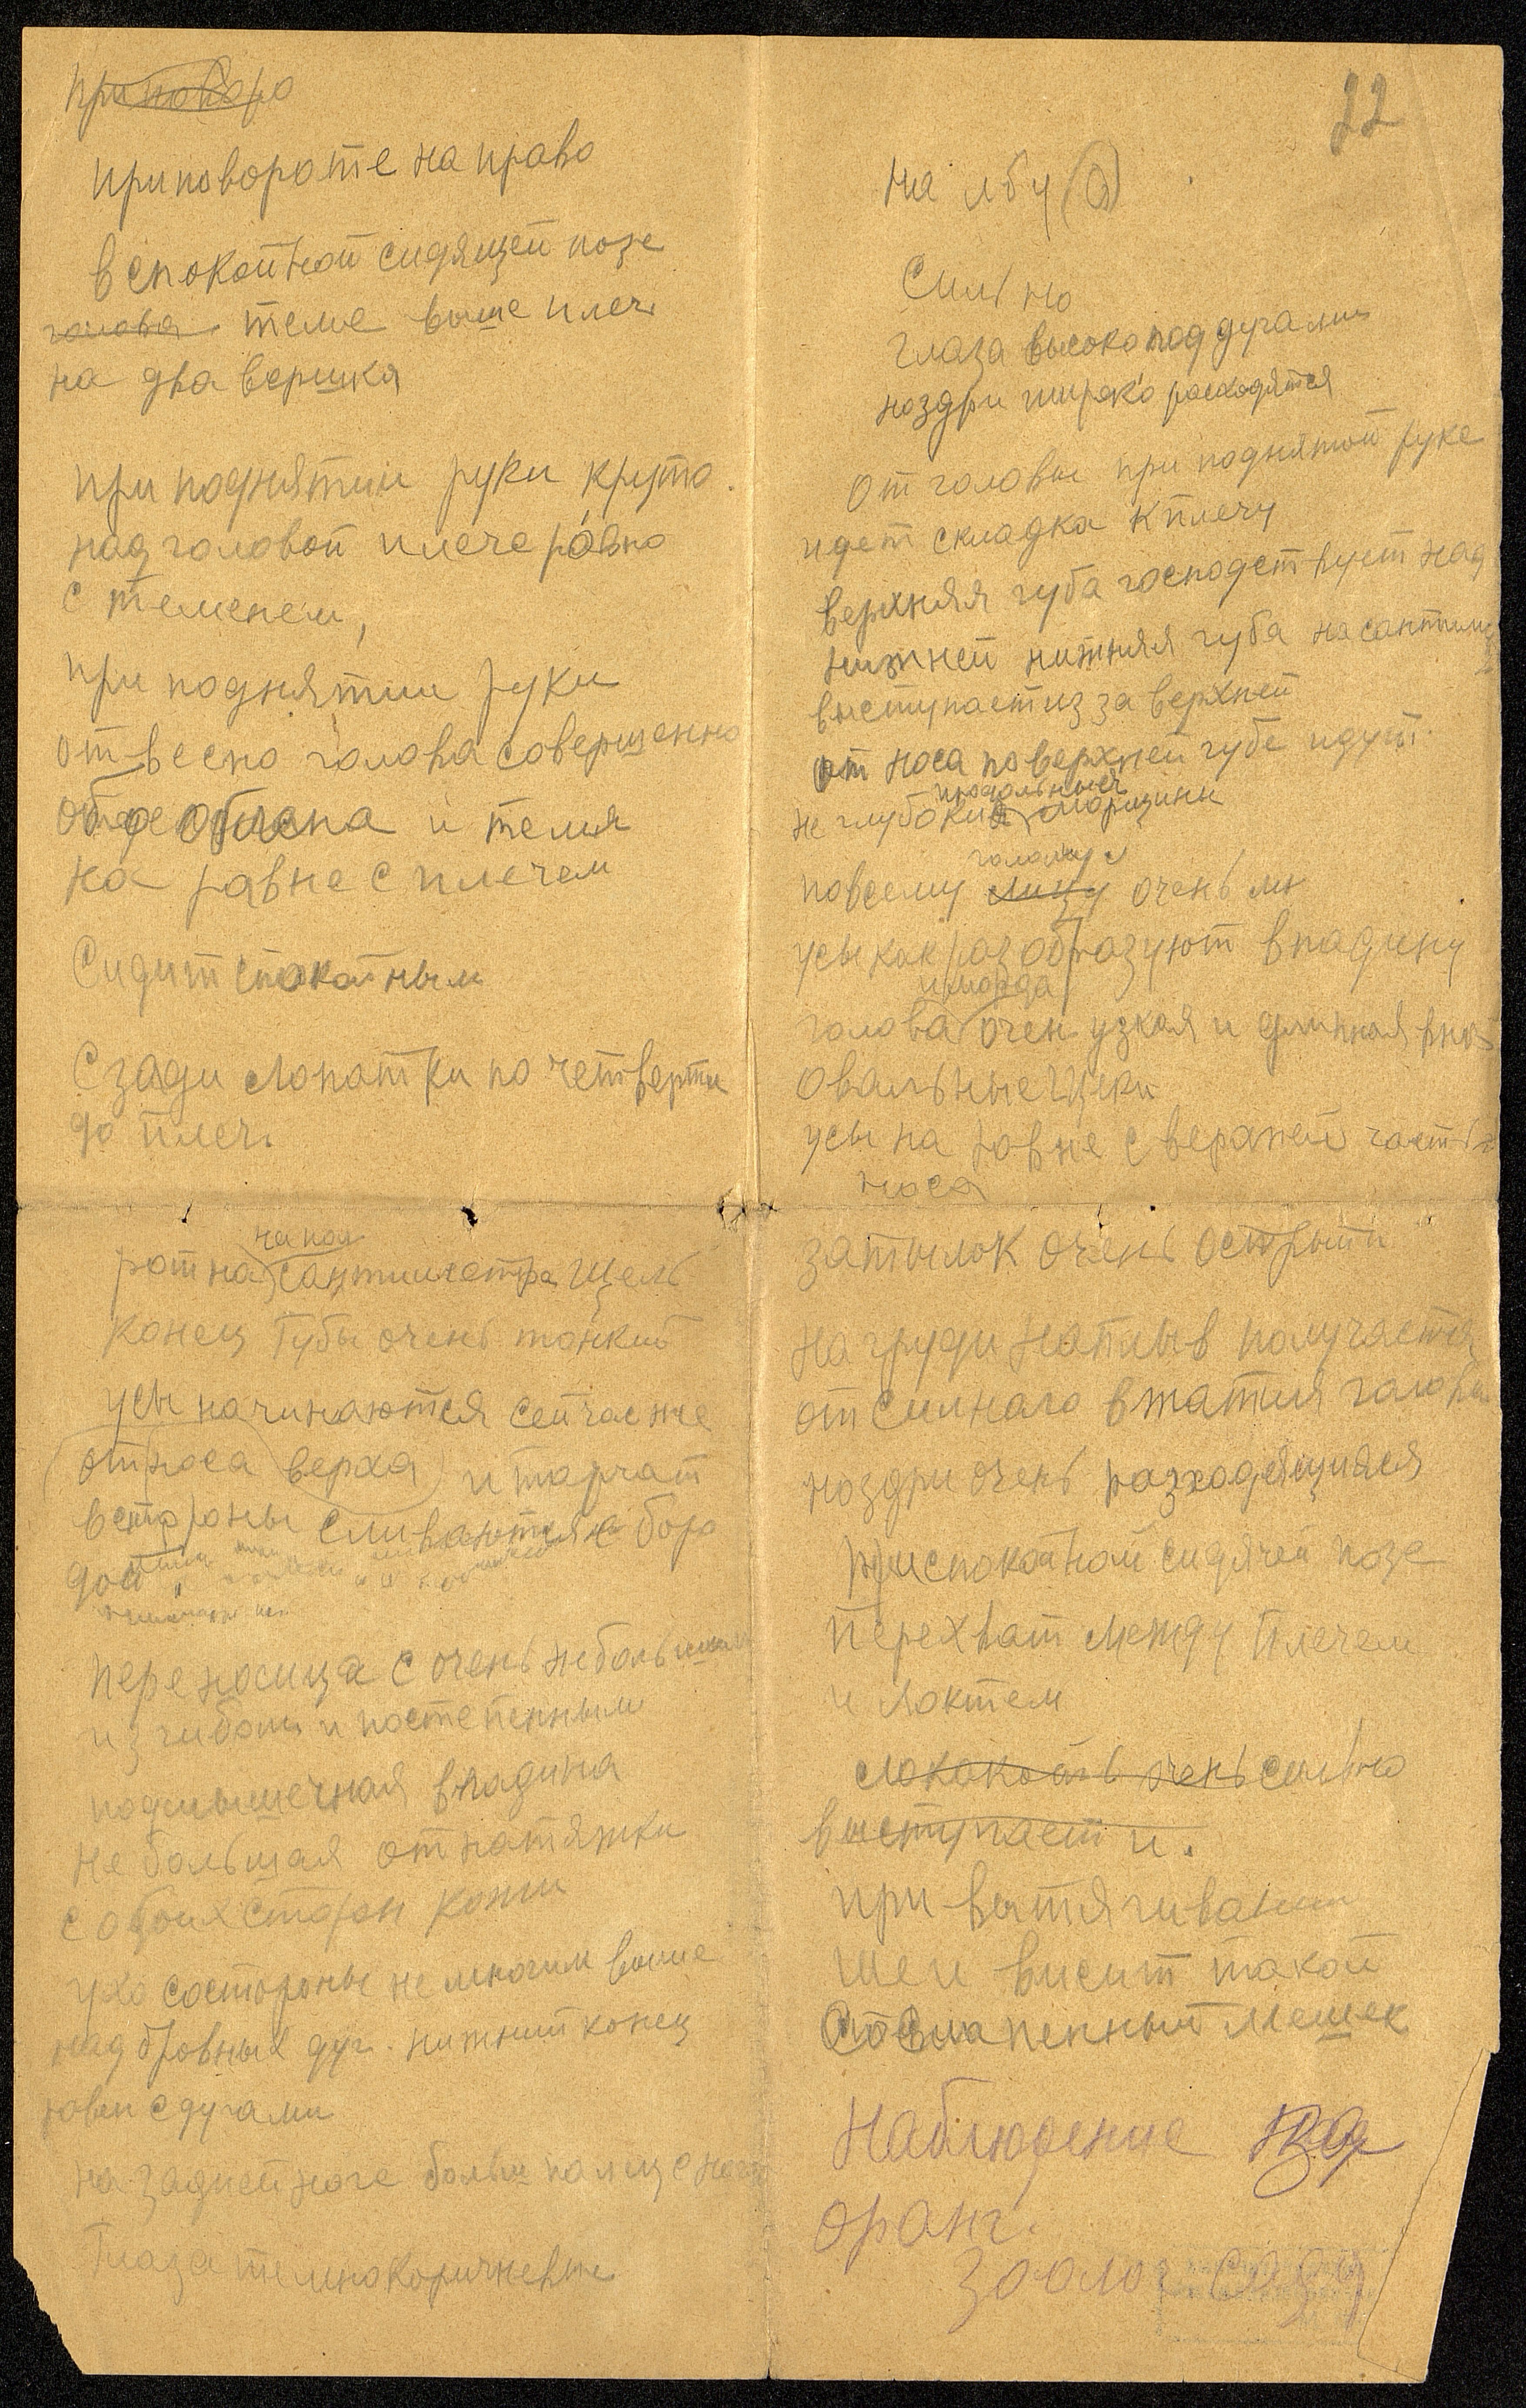 приповоро
приповороте на право
в спокойной сидящей позе
голова теме выше плеч
на два вершка
при поднятии руки круто
над головой плече ровно
с теменем,
при поднятии руки
отвесно голова совершенно
и темя
на равне с плечем
Сидит спокойным
Сзади лопатки по четверти
до плеч.
рот на сантиметра щель
конец губы очень тонкий
усы начинаются сейчас же
от носа верха и торчат
в стороны сливаются с боро
дой
переносица с очень небольшим
изгибом и постепенным
подмышечная впадина
не большая от натяжки
с обоих сторон кожи
ухо состороны не многим выше
надбровных дуг. нижний конец
ровен с дугами
на задней ноге больш палец с
Глаза темнокоричневые
22
На лбу
Сильно
глаза высоко под дугами
ноздри широко расходятся
От головы при поднятой руке
идет складка к плечу
верхняя губа господствует над
нижней нижняя губа на сантиме
выступает из за верхней
от носа по верхней губе идут
продольные
не глубокия морщины
повсему лицу очень
усы как раз образуют впадину
и морда
голова очен узкая и длинная
овальные щеки
усы на ровне с верхней часть
носа
затылок очень острый
На груди наплыв получается
от силнаго вжатия головы
ноздри очень разходящияся
при спокойной сидячей позе
перехват между плечем
и локтем
очень сильно
выступает и.
при вытягивании
шеи висит такой
мешек
Наблюдение над
оранг.
Зоолог. сад